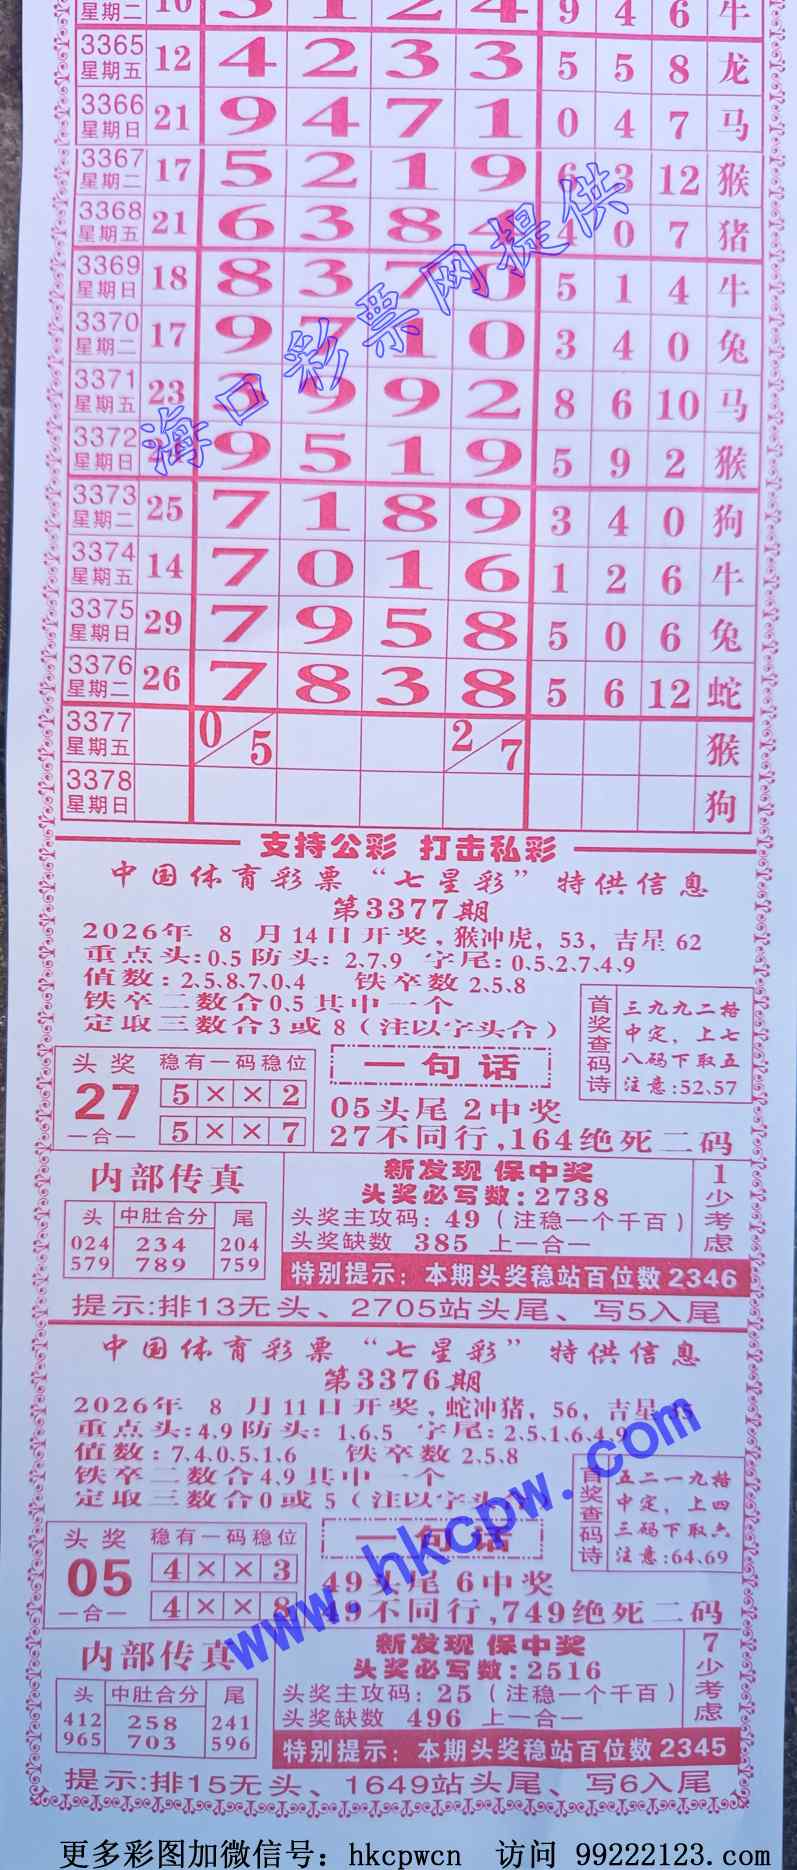 星期二 10 3 1 2 4 9 4 6 牛
3365 星期五 12 4 2 3 3 5 5 8 龙
3366 星期日 21 9 4 7 1 0 4 7 马
3367 星期二 17 5 2 1 9 6 3 12 猴
3368 星期五 21 6 3 8 4 4 0 7 猪
3369 星期日 18 8 3 7 0 5 1 4 牛
3370 星期二 17 9 7 1 0 3 4 0 兔
3371 星期五 23 3 9 9 2 8 6 10 马
3372 星期日 9 5 1 9 5 9 2 猴
3373 星期二 25 7 1 8 9 3 4 0 狗
3374 星期五 14 7 0 1 6 1 2 6 牛
3375 星期日 29 7 9 5 8 5 0 6 兔
3376 星期二 26 7 8 3 8 5 6 12 蛇
3377 星期五 0/5 2/7 猴
3378 星期日 狗
海口彩票网提供
支持公彩 打击私彩
中国体育彩票“七星彩”特供信息
第3377期
2026年 8 月14日开奖，猴冲虎，53，吉星 62
重点头:0.5 防头: 2.7.9 字尾:0.5.2.7.4.9
值数:2.5.8.7.0.4 铁卒数 2.5.8
铁卒二数合0.5其中一个
定取三数合3或8（注以字头合）
首奖查码诗
三九九二格
中定，上七
八码下取五
注意:52.57
头奖 27 一合一
稳有一码稳位
5 × × 2
5 × × 7
一句话
05头尾 2中奖
27不同行,164绝死二码
内部传真
头 中肚合分 尾
024 234 204
579 789 759
新发现 保中奖
头奖必写数:2738
头奖主攻码: 49（注稳一个千百）
头奖缺数 385 上一合一
1少考虑
特别提示：本期头奖稳站百位数2346
提示:排13无头、2705站头尾、写5入尾
中国体育彩票“七星彩”特供信息
第3376期
2026年 8 月11日开奖,蛇冲猪，56，吉星
重点头:4.9防头: 1.6.5 字尾:2.5.1.6.4.9
值数: 7.4.0.5.1.6 铁卒数 2.5.8
铁卒二数合4.9其中一个
定取三数合0或 5（注以字头合）
首奖查码诗
五二一九格
中定，上四
三码下取六
注意:64.69
头奖 05 一合一
稳有一码稳位
4 × × 3
4 × × 8
一句话
49头尾 6中奖
49不同行,749绝死二码
内部传真
头 中肚合分 尾
412 258 241
965 703 596
新发现 保中奖
头奖必写数:2516
头奖主攻码: 25（注稳一个千百）
头奖缺数 496 上一合一
7少考虑
特别提示：本期头奖稳站百位数2345
提示:排15无头、1649站头尾、写6入尾
www.hkcpw.com
更多彩图加微信号：hkcpwcn 访问 99222123.com